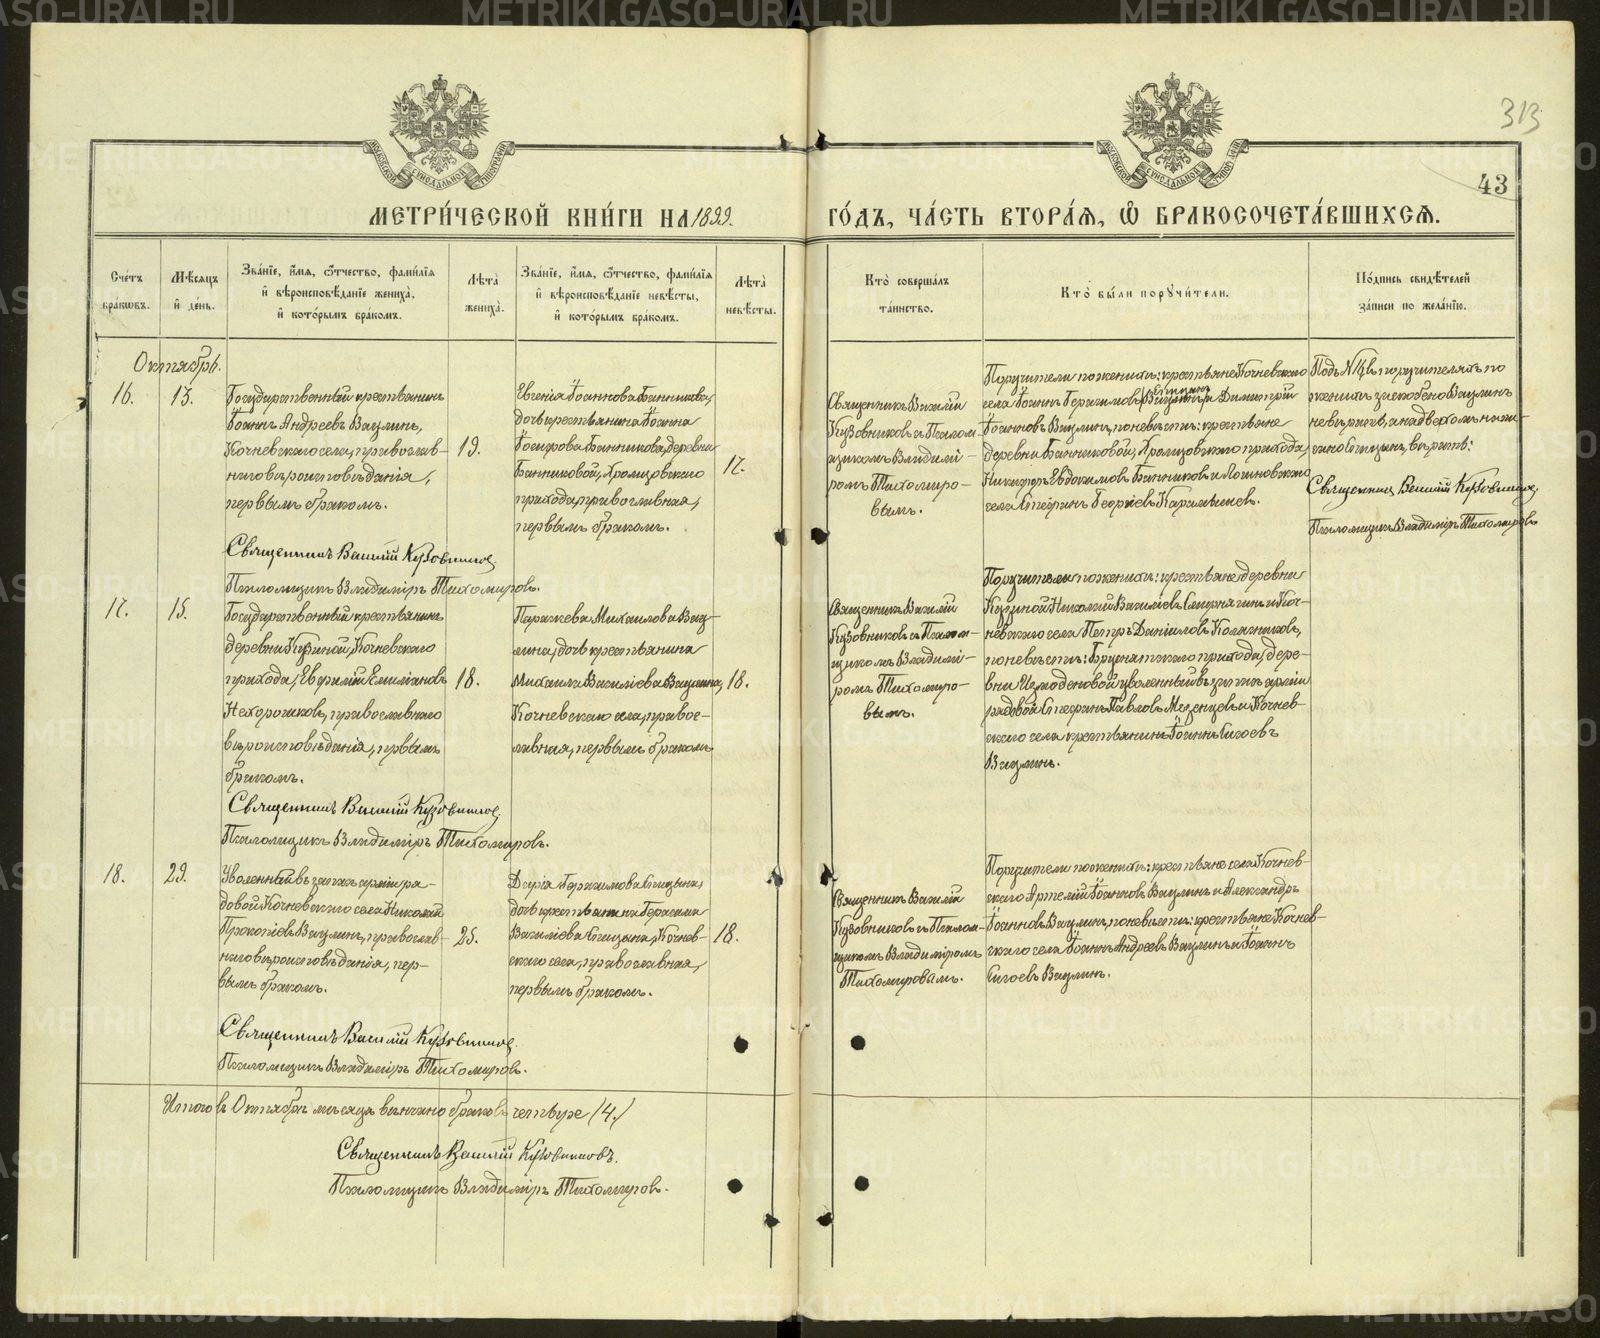 METRIKI.GASO-URAL.RU
313
43
МОСКОВСКОЙ СѴНОДАЛЬНОЙ ТИПОГРАФІИ
МЕТРИ́ЧЕСКОЙ КНИ́ГИ НА 1899.
ГО́ДЪ, ЧА́СТЬ ВТОРА́Я, Ѡ҆ БРАКОСОЧЕТА́ВШИХСѦ.
Сче́тъ бра́кѡвъ.
Мѣ́сѧцъ и҆ де́нь.
Зва́нїе, и҆́мѧ, ѻ҆́тчество, фамї́лїѧ и҆ вѣроисповѣ́данїе жениха̀, и҆ кото́рымъ бра́комъ.
Лѣ́та жениха̀.
Зва́нїе, и҆́мѧ, ѻ҆́тчество, фамї́лїѧ и҆ вѣроисповѣ́данїе невѣ́сты, и҆ кото́рымъ бра́комъ.
Лѣ́та невѣ́сты.
Кто̀ соверша́лъ та́инство.
Кто̀ бы́ли поручи́тели.
По́дпись свидѣ́телей за́писи по жела́нїю.
Октябрь.
16.
13.
Государственный крестьянинъ
Іоаннъ Андреевъ Ваулинъ,
Кочневскаго села, православ-
наго вѣроисповѣданія,
первымъ бракомъ.
19.
Евгенія Іоаннова Банникова,
дочь крестьянина Іоанна
Банникова, деревни
Банниковой, Храмцовскаго
прихода, православная,
первымъ бракомъ.
17.
Священникъ Василій
Кузовниковъ съ Псалом-
щикомъ Владимі-
ромъ Тихомиро-
вымъ.
Поручители по женихѣ: крестьяне Кочневскаго
села Іоаннъ Герасимовъ и Димитрій
Іоанновъ Ваулинъ, по невѣстѣ: крестьяне
деревни Банниковой, Храмцовскаго прихода,
Никифоръ Евдокимовъ Банниковъ и Логиновскаго
села Георгіевъ
Подъ № 16 въ поручителяхъ по
женихѣ Ваулинъ
Священникъ Василій Кузовниковъ.
Псаломщикъ Владиміръ Тихомировъ
Священникъ Василій Кузовниковъ.
Псаломщикъ Владиміръ Тихомировъ.
17.
15.
Государственный крестьянинъ
деревни Кузиной, Кочневскаго
прихода, Емиліановъ
Нехорошковъ, православнаго
вѣроисповѣданія, первымъ
бракомъ.
18.
Параскева Михаилова Вау-
лина, дочь крестьянина
Михаила Василіева Ваулина,
Кочневскаго села, правос-
лавная, первымъ бракомъ
18.
Священникъ Василій
Кузовниковъ съ Псалом-
щикомъ Владимі-
ромъ Тихомиро-
вымъ.
Поручители по женихѣ: крестьяне деревни
Кузиной Николай Василіевъ и Коч-
невскаго села Петръ Даніиловъ Колясниковъ,
по невѣстѣ: прихода, дере-
вни Измоденовой уволенный въ запасъ арміи
рядовой Стефанъ Павловъ Мезенцевъ и Кочнев-
скаго села крестьянинъ Іоаннъ
Ваулинъ.
Священникъ Василій Кузовниковъ.
Псаломщикъ Владиміръ Тихомировъ.
18.
29.
Уволенный въ запасъ арміи ря-
довой Кочневскаго села Николай
Прокопіевъ Ваулинъ, православ-
наго вѣроисповѣданія, пер-
вымъ бракомъ.
25.
Дарія Герасимова Спицына,
дочь крестьянина Герасима
Василіева Спицына, Кочнев-
скаго села, православная,
первымъ бракомъ.
18.
Священникъ Василій
Кузовниковъ съ Псалом-
щикомъ Владиміромъ
Тихомировымъ.
Поручители по женихѣ: крестьяне села Кочнев-
скаго Артемій Іоанновъ Ваулинъ и Александръ
Іоанновъ Ваулинъ, по невѣстѣ: крестьяне Кочнев-
скаго села Іоаннъ Андреевъ Ваулинъ и Іоаннъ
Ваулинъ.
Священникъ Василій Кузовниковъ.
Псаломщикъ Владиміръ Тихомировъ.
Итого въ Октябрѣ мѣсяцѣ вѣнчано браковъ четыре (4.)
Священникъ Василій Кузовниковъ.
Псаломщикъ Владиміръ Тихомировъ.